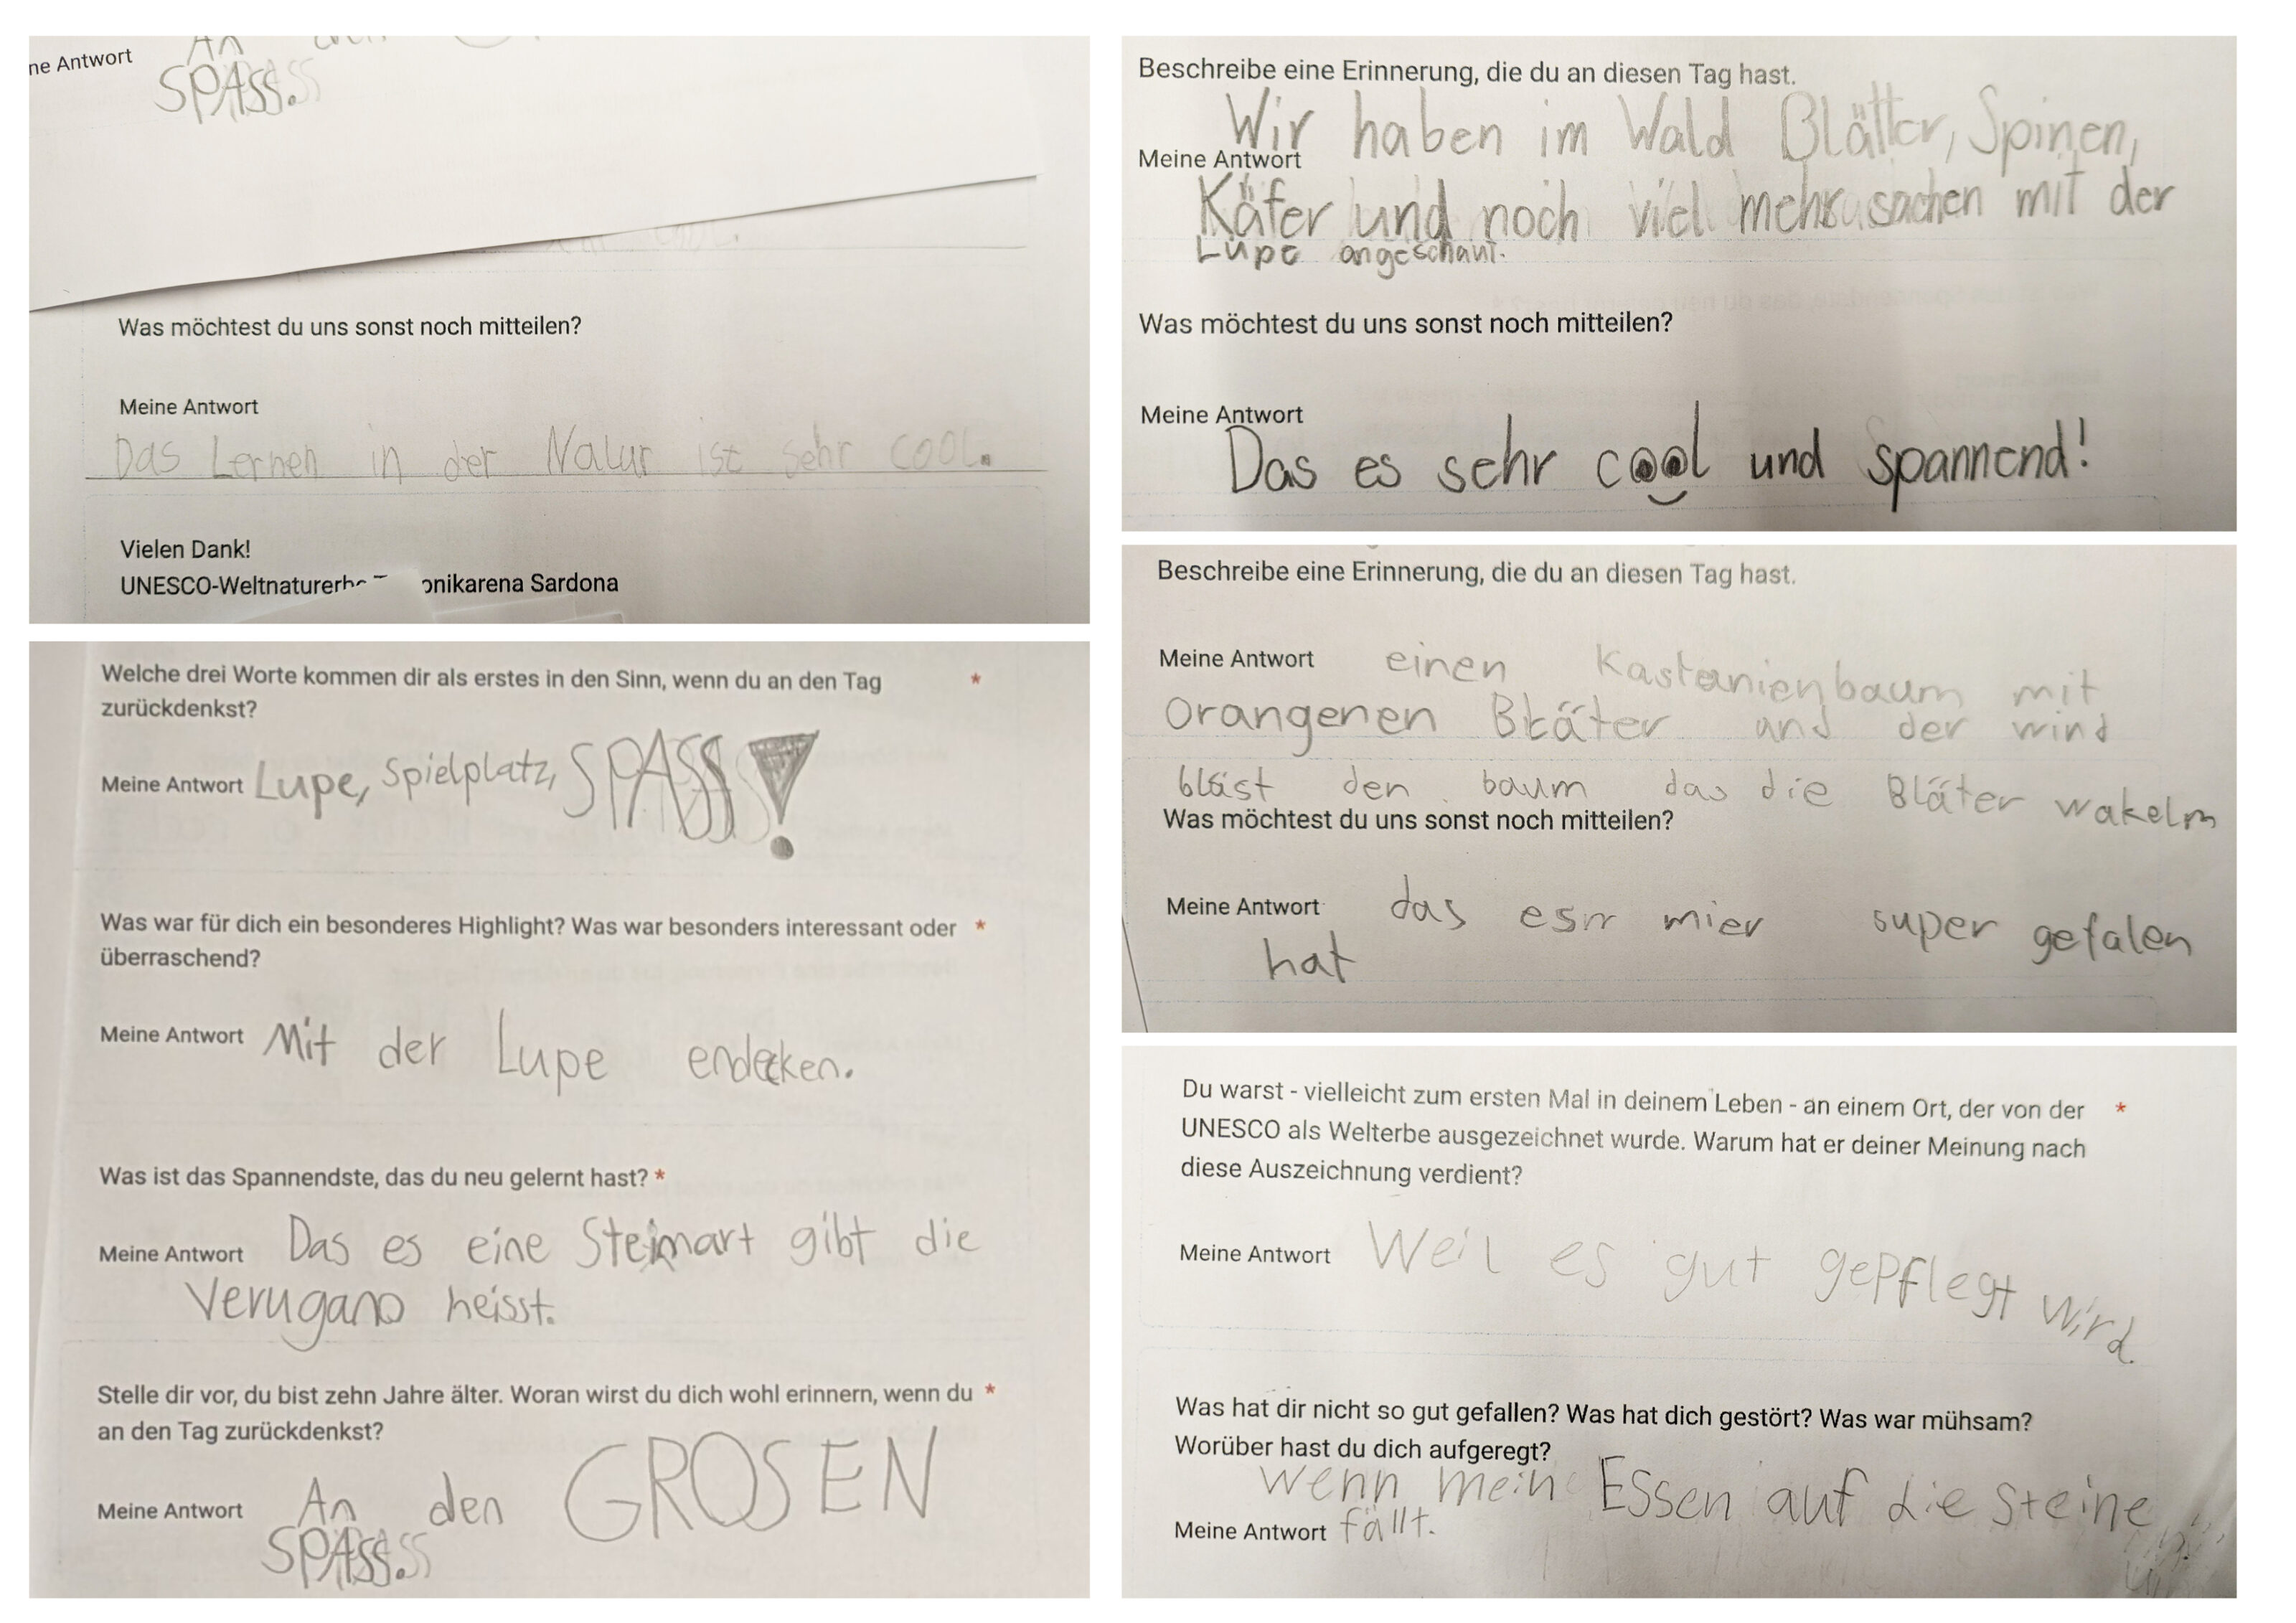 ne Antwort
An
SPASS.
Was möchtest du uns sonst noch mitteilen?
Meine Antwort
Das Lernen in der Natur ist sehr cool.
Vielen Dank!
UNESCO-Weltnaturerbe onikarena Sardona
Welche drei Worte kommen dir als erstes in den Sinn, wenn du an den Tag *
zurückdenkst?
Meine Antwort Lupe, Spielplatz, SPASS!
Was war für dich ein besonderes Highlight? Was war besonders interessant oder *
überraschend?
Meine Antwort Mit der Lupe endecken.
Was ist das Spannendste, das du neu gelernt hast? *
Meine Antwort Das es eine Steinart gibt die
Verugano heisst.
Stelle dir vor, du bist zehn Jahre älter. Woran wirst du dich wohl erinnern, wenn du *
an den Tag zurückdenkst?
Meine Antwort An den GROSEN
SPASS.
Beschreibe eine Erinnerung, die du an diesen Tag hast.
Wir haben im Wald Blätter, Spinen,
Meine Antwort
Käfer und noch viel mehr sachen mit der
Lupe angeschaut.
Was möchtest du uns sonst noch mitteilen?
Meine Antwort
Das es sehr cool und spannend!
Beschreibe eine Erinnerung, die du an diesen Tag hast.
Meine Antwort einen Kastanienbaum mit
Orangenen Bläter und der wind
bläst den baum das die Bläter wakeln
Was möchtest du uns sonst noch mitteilen?
Meine Antwort das es mier super gefalen
hat
Du warst - vielleicht zum ersten Mal in deinem Leben - an einem Ort, der von der *
UNESCO als Welterbe ausgezeichnet wurde. Warum hat er deiner Meinung nach
diese Auszeichnung verdient?
Meine Antwort Weil es gut gepflegt wird.
Was hat dir nicht so gut gefallen? Was hat dich gestört? Was war mühsam?
Worüber hast du dich aufgeregt?
wenn mein Essen auf die Steine
Meine Antwort fällt.